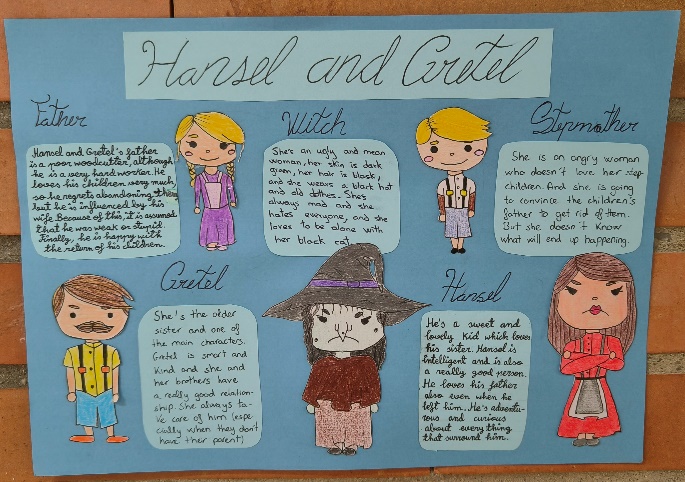 Hansel and Gretel
Father
Hansel and Gretel's father
is a poor woodcutter, although
he is a very hard worker. He
loves his children very much,
so he regrets abandoning them
but he is influenced by his
wife. Because of this, it is assumed
that he was weak or stupid.
Finally, he is happy with
the return of his children.
Witch
She's an ugly and mean
woman, her skin is dark
green, her hair is black,
and she wears a black hat
and old clothes. She's
always mad and she
hates everyone, and she
loves to be alone with
her black cat.
Stepmother
She is an angry woman
who doesn't love her step
children. And she is going
to convince the children's
father to get rid of them.
But she doesn't know
what will end up happening.
Gretel
She's the older
sister and one of
the main characters.
Gretel is smart and
kind and she and
her brothers have
a really good relation-
ship. She always ta-
ke care of him (espe-
cially when they don't
have their parent)
Hansel
He's a sweet and
lovely kid which loves
his sister. Hansel is
intelligent and is also
a really good person.
He loves his father
also even when he
left him. He's adventu-
rous and curious
about everything
that surround him.